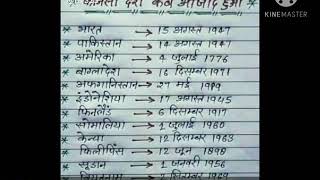 KINEMASTER
* कौनसा देश कब आजाद हुआ
* भारत → 15 अगस्त 1947
* पाकिस्तान → 14 अगस्त 1947
* अमेरिका → 4 जुलाई 1776
* बांग्लादेश → 16 दिसम्बर 1971
* अफगानिस्तान → 27 मई
* इंडोनेशिया → 17 अगस्त 1945
* फिनलैंड → 6 दिसम्बर 1917
* सोमालिया → 1 जुलाई 1960
* केन्या → 12 दिसम्बर 1963
* फिलीपिंस → 12 जून 1898
* सूडान → 1 जनवरी 1956